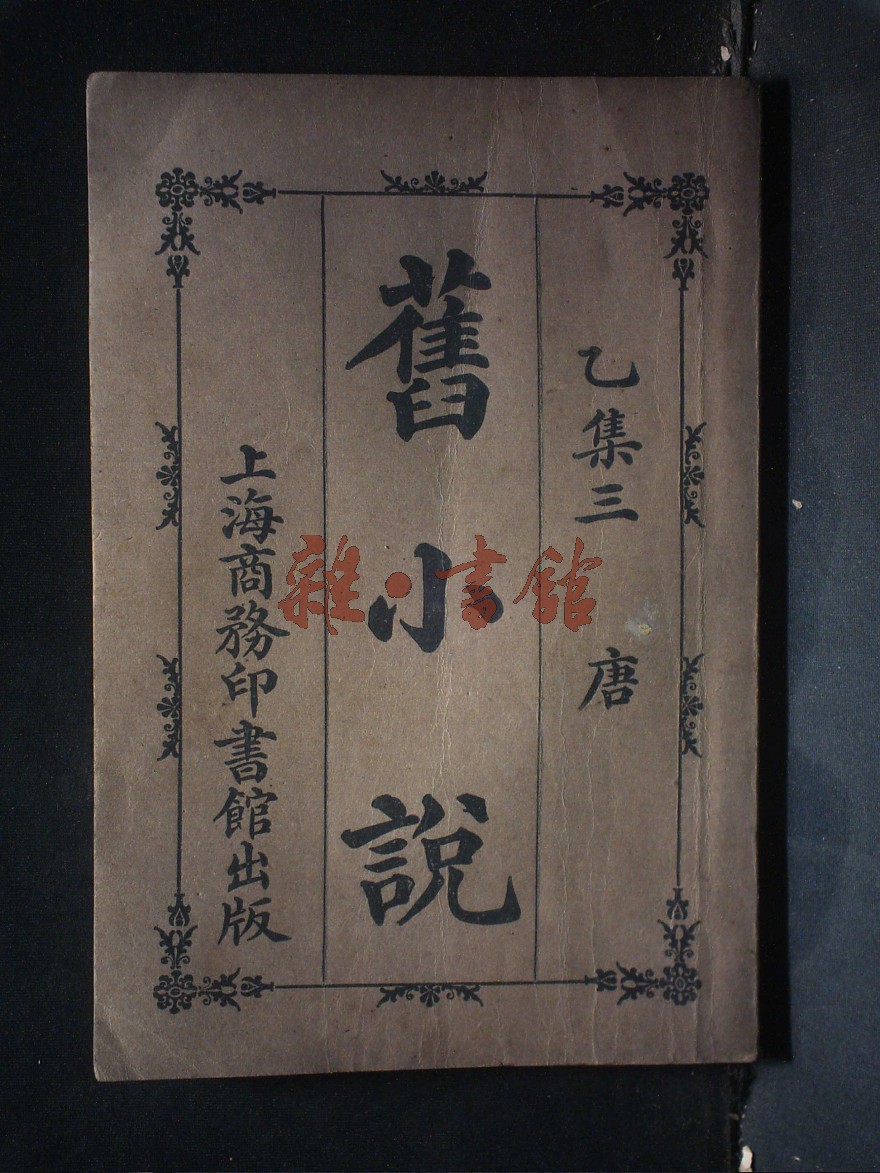 乙集三 唐
舊小說
上海商務印書館出版
雜·書館